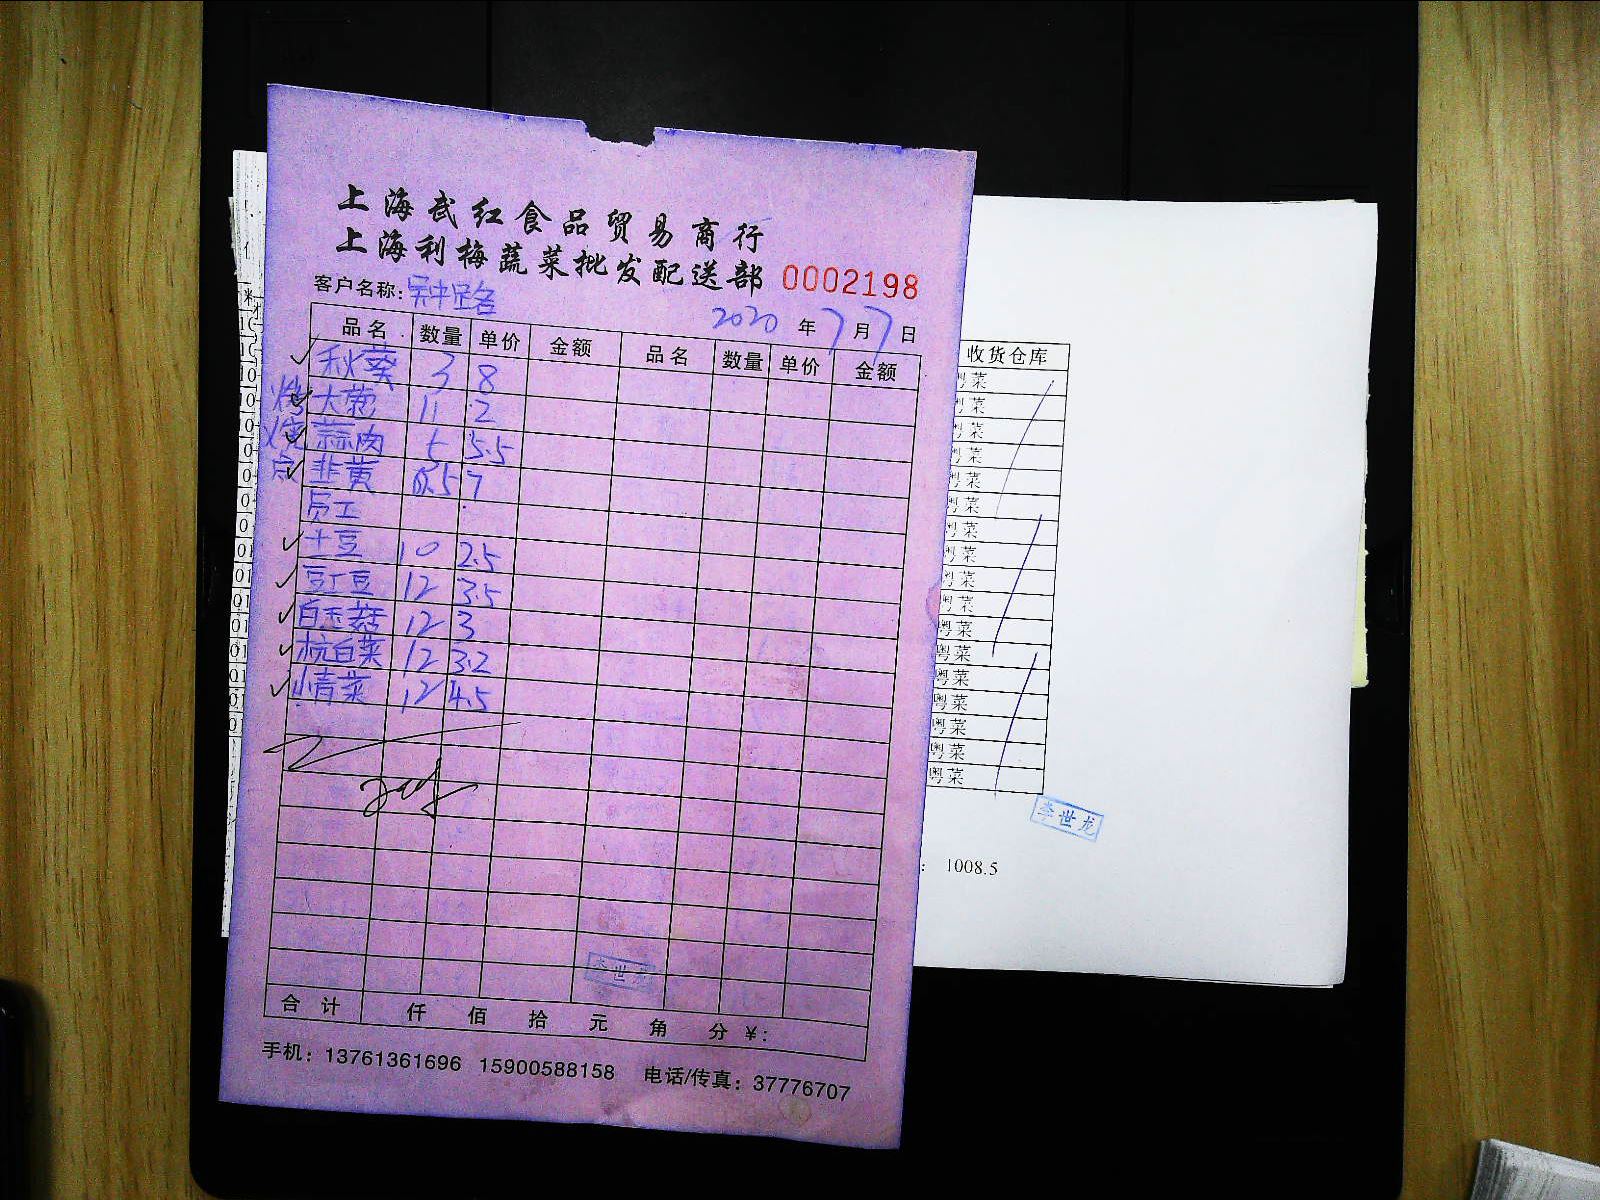 上海武红食品贸易商行
上海利梅蔬菜批发配送部 0002198
客户名称: 吴中路
2020 年 7 月 7 日
品名 数量 单价 金额 品名 数量 单价 金额
秋葵 3 8
大葱 11 2
蒜肉 5.5
韭黄 0.5 7
员工
土豆 10 2.5
豇豆 12 3.5
白玉菇 12 3
杭白菜 12 3.2
小青菜 12 4.5
李世龙
合计 仟 佰 拾 元 角 分 ¥:
手机: 13761361696 15900588158 电话/传真: 37776707
收货仓库
粤菜
粤菜
粤菜
粤菜
粤菜
粤菜
粤菜
粤菜
粤菜
粤菜
粤菜
粤菜
粤菜
粤菜
粤菜
粤菜
粤菜
李世龙
: 1008.5